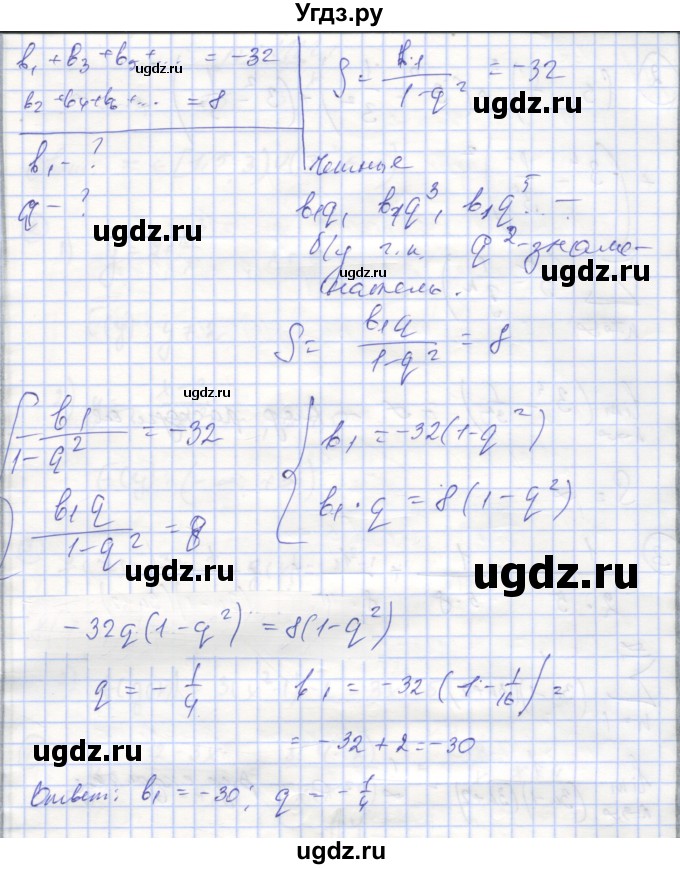 Угдз.ру
b₁ + b₃ + b₅ + ... = -32
b₂ + b₄ + b₆ + ... = 8
b₁ - ?
q - ?
S = b₁/(1-q²) = -32
ugdz.ru
ugdz.ru
Четные
b₁q, b₁q³, b₁q⁵... -
б/у г.п. q² - знаме-
натель.
ugdz.ru
ugdz.ru
ugdz.ru
S = b₁q/(1-q²) = 8
ugdz.ru
b₁/(1-q²) = -32
b₁q/(1-q²) = 8
b₁ = -32(1-q²)
b₁ · q = 8(1-q²)
ugdz.ru
ugdz.ru
ugdz.ru
ugdz.ru
-32q(1-q²) = 8(1-q²)
q = -1/4
b₁ = -32(1-1/16) =
= -32+2 = -30
ugdz.ru
ugdz.ru
Ответ: b₁ = -30; q = -1/4
ugdz.ru